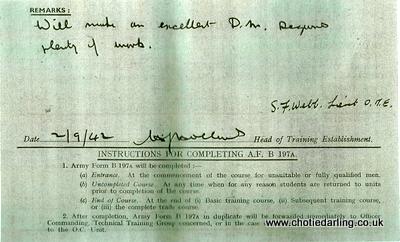 REMARKS :
Will make an excellent D.M. Requires
plenty of work.
S.F. Webb. Lieut O.M.E.
Date 2/9/42 Head of Training Establishment.
INSTRUCTIONS FOR COMPLETING A.F. B 197A.
1. Army Form B 197A will be completed :—
(a) Entrance. At the commencement of the course for unsuitable or fully qualified men.
(b) Uncompleted Course. At any time when for any reason students are returned to units
prior to completion of course.
(c) End of Course. At the end of (i) Basic training course, (ii) Subsequent training course,
or (iii) the complete trade course.
2. After completion, Army Form B 197A in duplicate will be forwarded immediately to Officer
Commanding, Technical Training Group concerned, or in the case of
to the O.C. Unit.
www.chotiedarling.co.uk